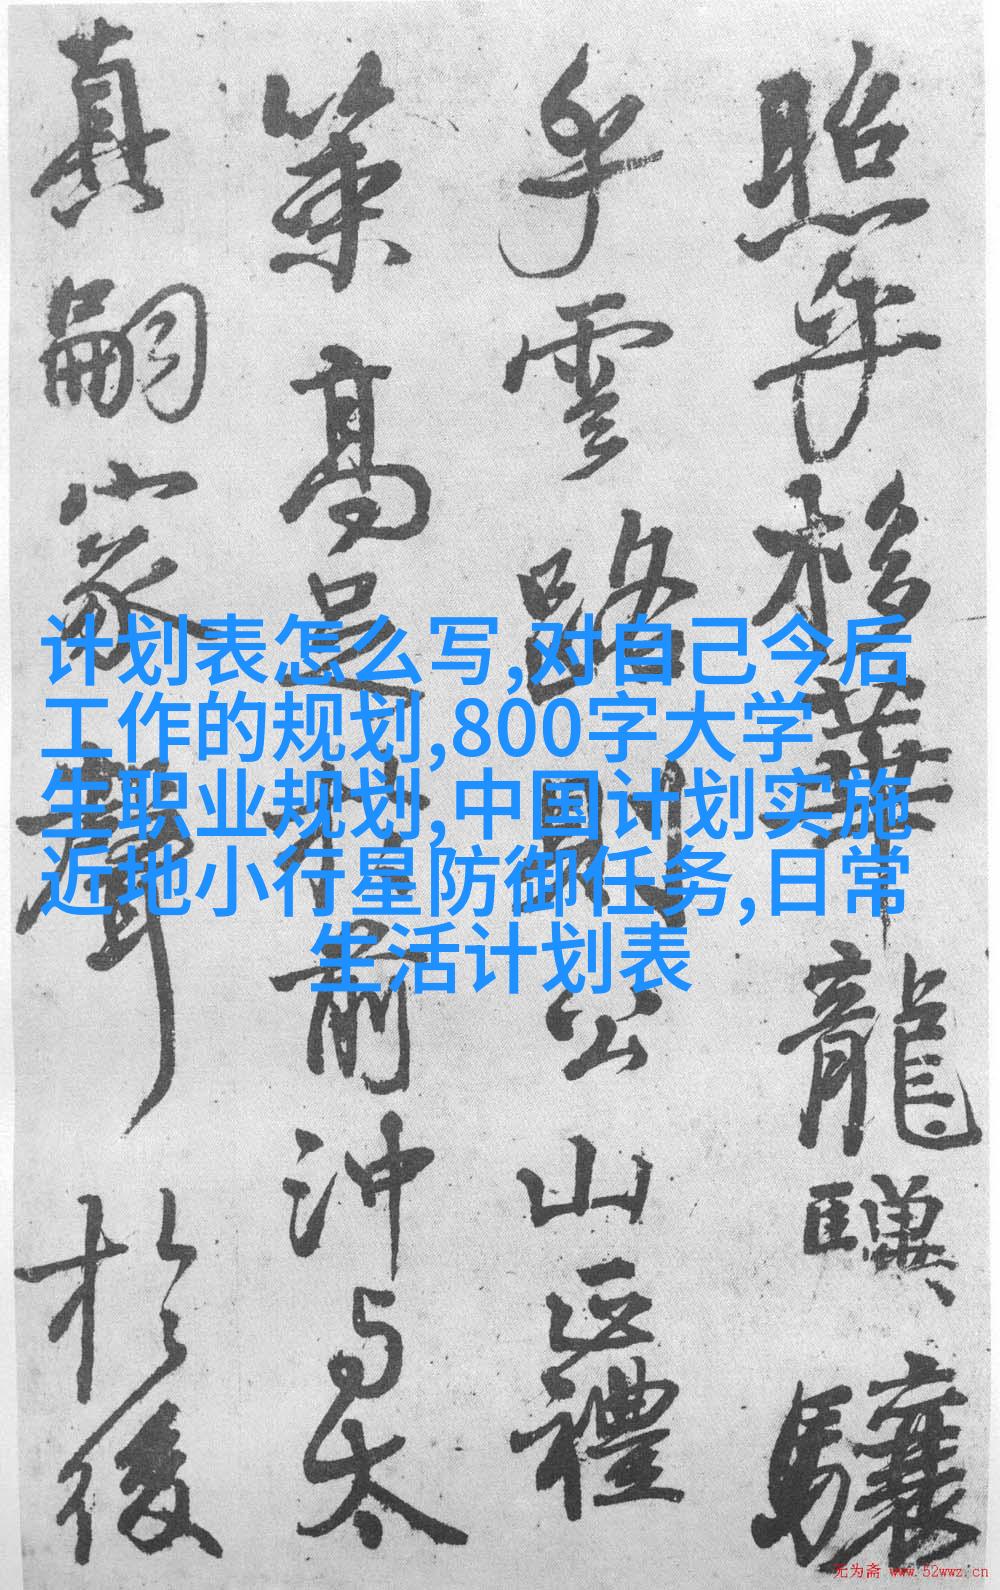 照乎移華龍驥驤
乎雲路則公山正禮
策高足於前沖与太
真嗣家聲於後
计划表怎么写,对自己今后
工作的规划,800字大学
生职业规划,中国计划实施
近地小行星防御任务,日常
生活计划表
无为斋 www.52wwz.cn